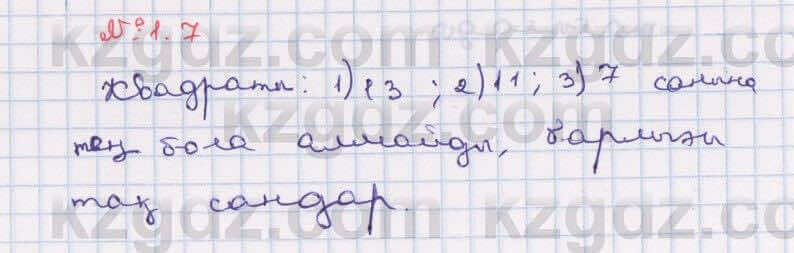 № 1.7
Квадраты: 1) 13 ; 2) 11 ; 3) 7 санына
тең бола алмайды, барлығы
тақ сандар.
kzgdz.com kzgdz.com
kzgdz.com
kzgdz.com kzgdz.com